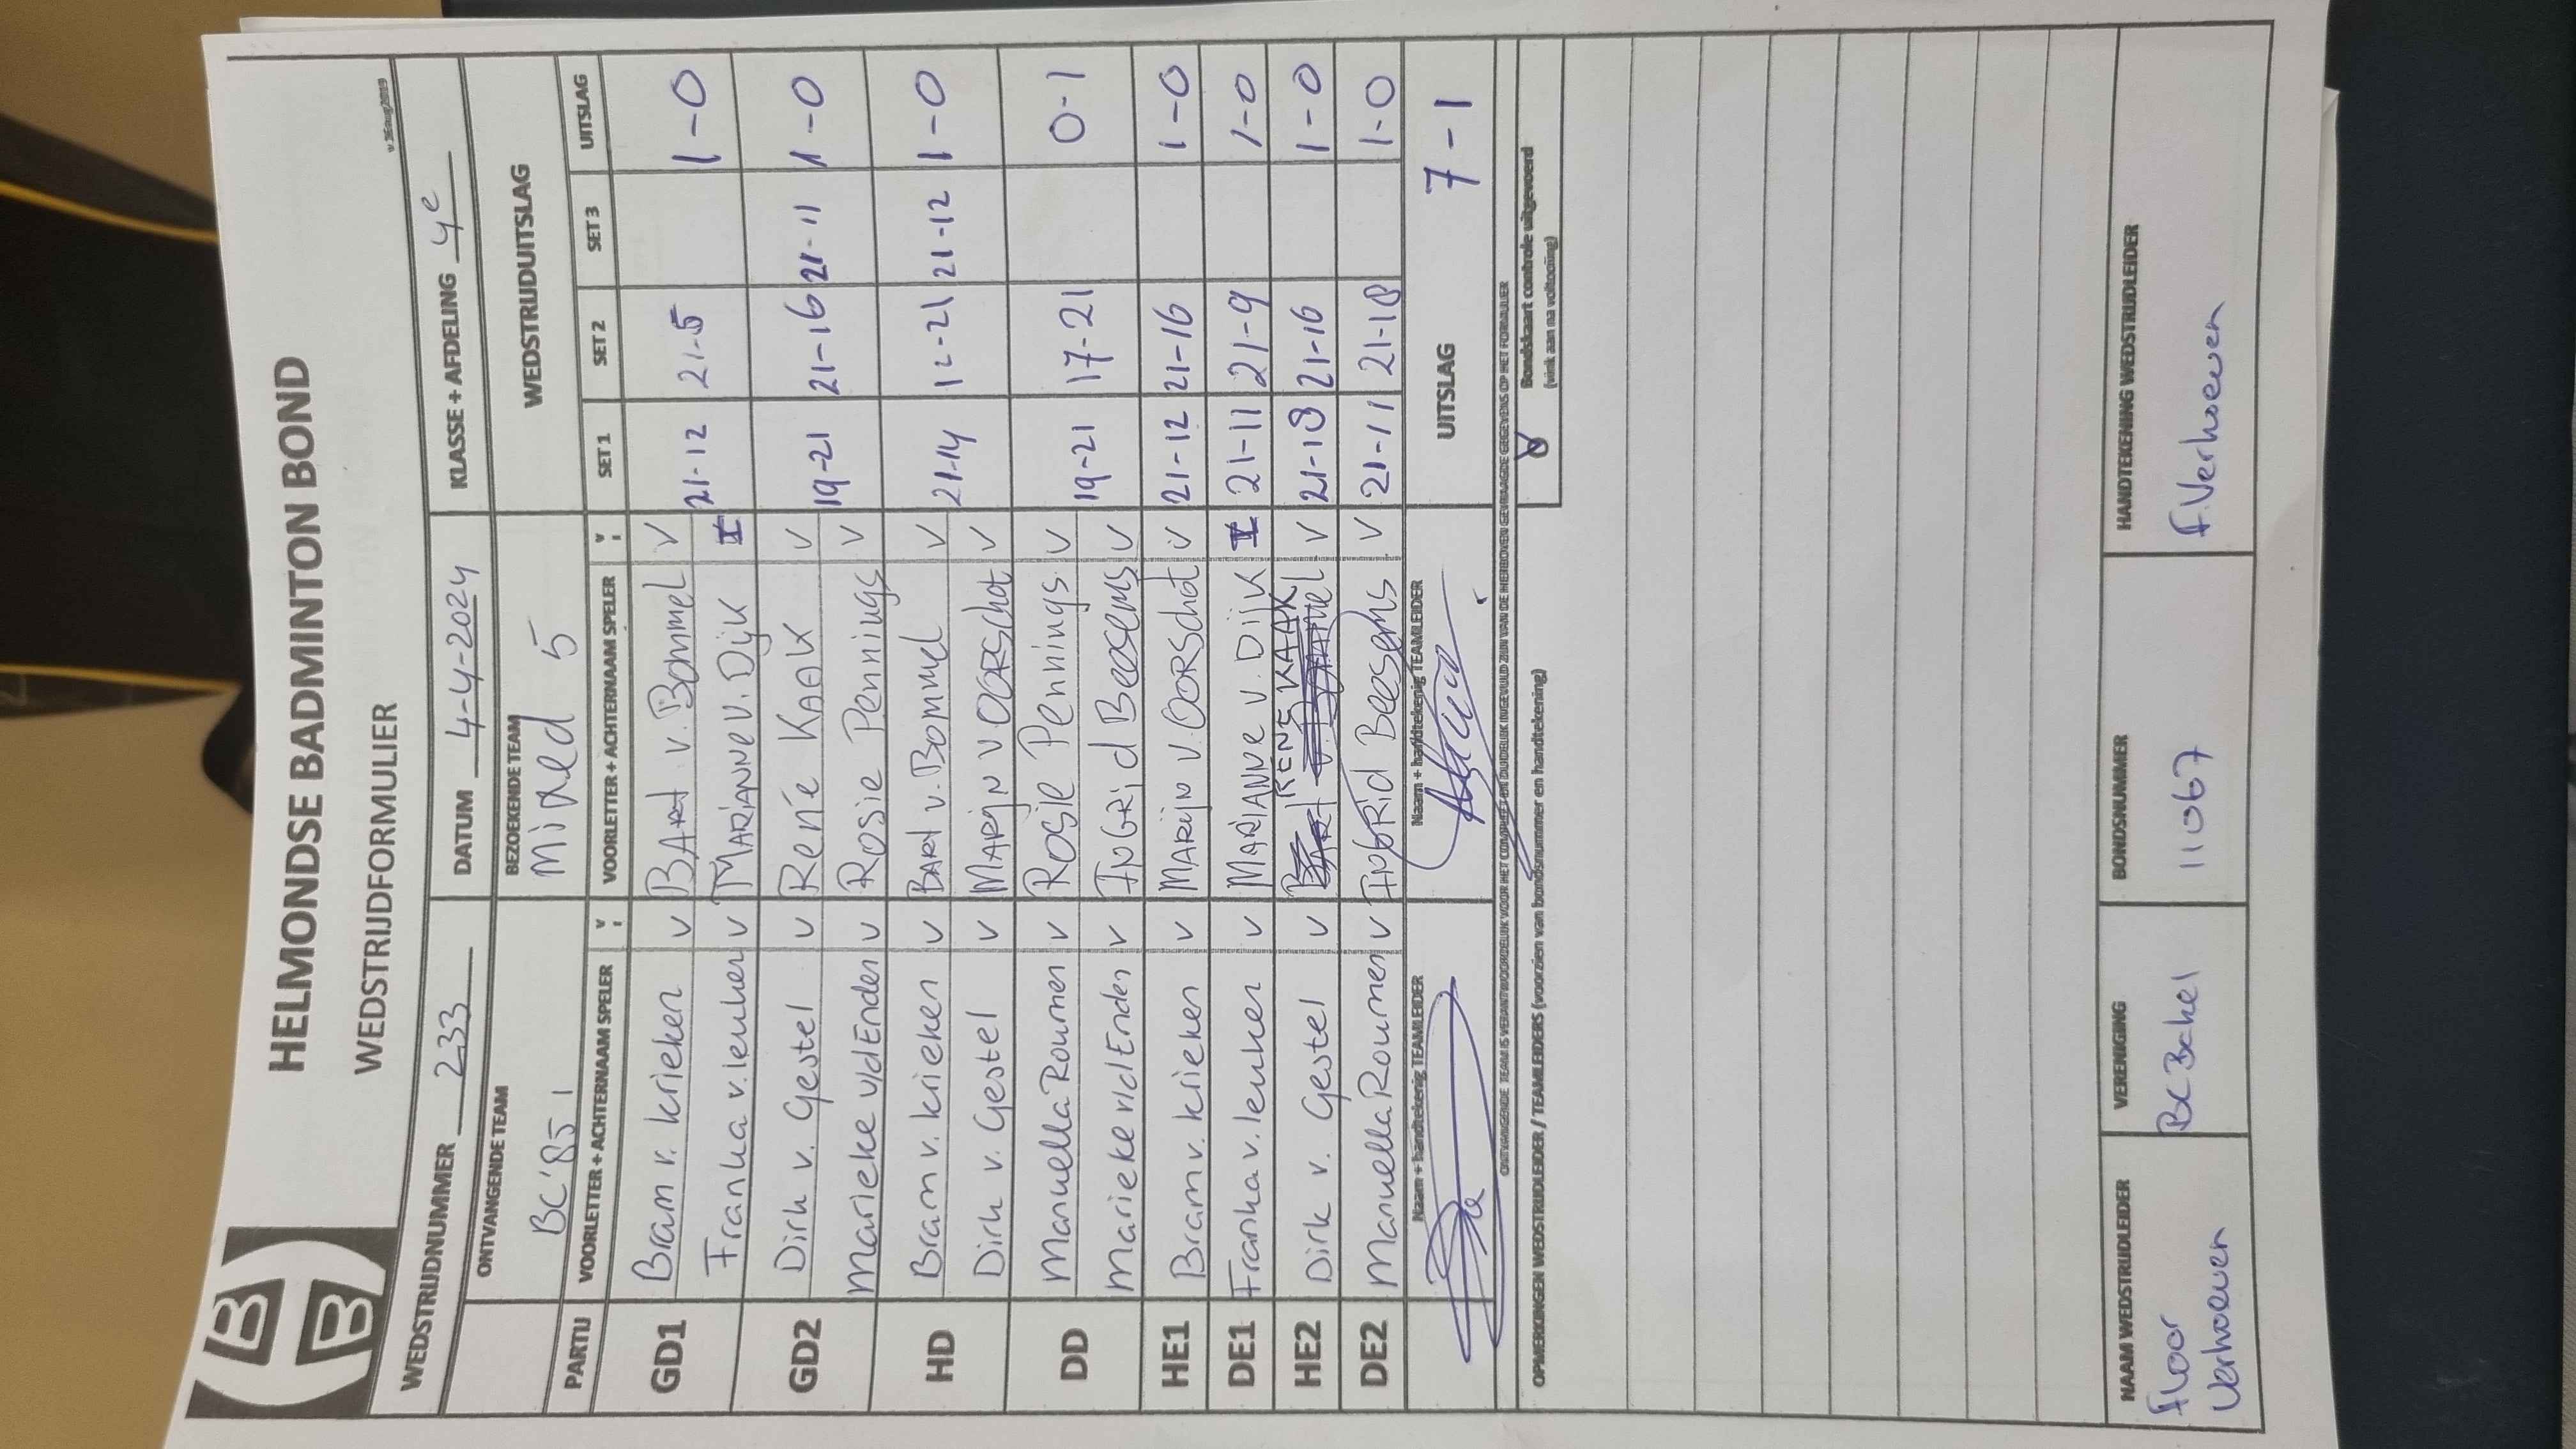 HELMONDSE BADMINTON BOND
WEDSTRIJDFORMULIER
WEDSTRIJDNUMMER 233 DATUM 4-4-2024 KLASSE + AFDELING 4e
ONTVANGENDE TEAM BEZOEKENDE TEAM WEDSTRIJDUITSLAG
BC'85 1 Mixed 5
PARTIJ VOORLETTER + ACHTERNAAM SPELER V VOORLETTER + ACHTERNAAM SPELER V SET 1 SET 2 SET 3 UITSLAG
GD1 Bram v. Krieken v BART v. Bommel v 21-12 21-5 1-0
Franka v. leuken v MARIANNE V. Dijk I
GD2 Dirk v. Gestel v René KAAK v 19-21 21-16 21-11 1-0
Marieke v/d Enden v Rosie Pennings v
HD Bram v. Krieken v BART v. Bommel v 21-14 12-21 21-12 1-0
Dirk v. Gestel v MARIJN V. OORSchot v
DD Manuella Roumen v Rosie Pennings v 19-21 17-21 0-1
Marieke v/d Enden v INGRid Beesems v
HE1 Bram v. Krieken v MARIJN V. OORSchot v 21-12 21-16 1-0
DE1 Franka v. leuken v MARIANNE v. Dijk I 21-11 21-9 1-0
HE2 Dirk v. Gestel v RENE KAAK v 21-18 21-16 1-0
DE2 Manuella Roumen v INGRid Beesems v 21-11 21-18 1-0
Naam + handtekenig TEAMLEIDER Naam + handtekenig TEAMLEIDER UITSLAG 7-1
ONTVANGENDE TEAM IS VERANTWOORDELIJK VOOR HET COMPLEET EN DUIDELIJK INGEVULD ZIJN VAN DE HIERBOVEN GEVRAAGDE GEGEVENS OP HET FORMULIER
OPMERKINGEN WEDSTRIJDLEIDER / TEAMLEIDERS (voorzien van bondsnummer en handtekening)
Bondskaart controle uitgevoerd
(vink aan na voltooiing)
NAAM WEDSTRIJDLEIDER VERENIGING BONDSNUMMER HANDTEKENING WEDSTRIJDLEIDER
Floor Verhoeven BC Bakel 11067 F.Verhoeven